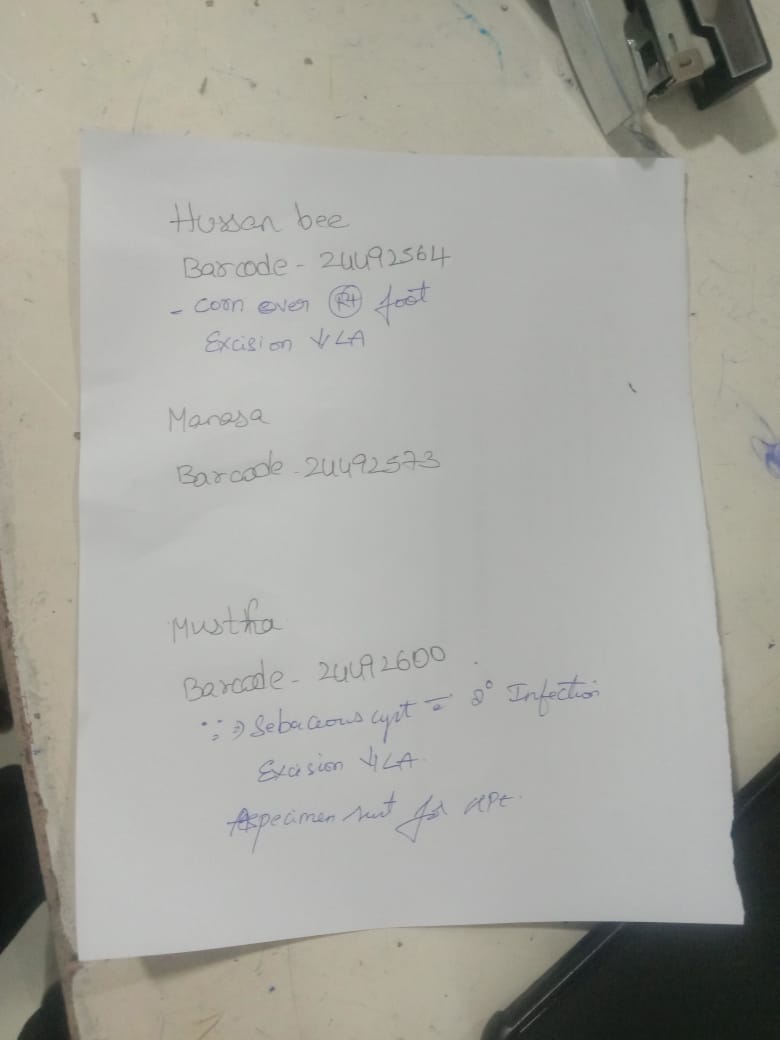 Hussan bee
Barcode - 24492564
- corn over Rt foot
Excision ↓ LA
Manasa
Barcode - 24492573
Mustfa
Barcode - 24492600
∴ ⇒ Sebaceous cyst c̄ 2° Infection
Excision ↓ LA
specimen sent for HPE.